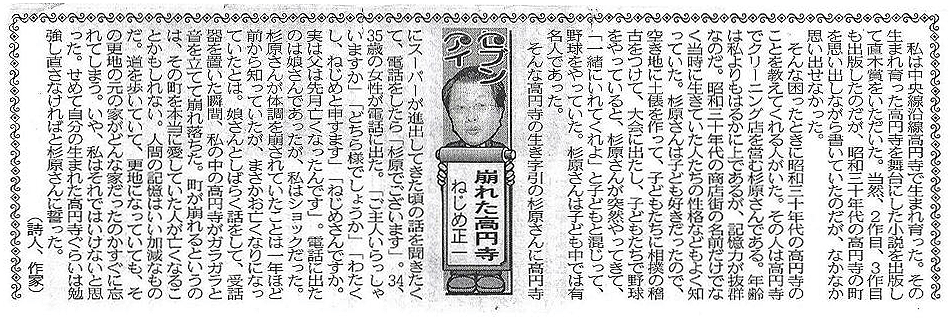 私は中央線沿線高円寺で生まれ育った。その
生まれ育った高円寺を舞台にした小説を出版し
て直木賞をいただいた。当然、2作目、3作目
も出版したのだが、昭和三十年代の高円寺の町
を思い出しながら書いていたのだが、なかなか
思い出せなかった。
そんな困ったときに昭和三十年代の高円寺の
ことを教えてくれる人がいた。その人は高円寺
でクリーニング店を営む杉原さんである。年齢
は私よりもはるかに上であるが、記憶力が抜群
なのだ。昭和三十年代の商店街の名前だけでな
く当時に生きていた人たちの性格などもよく知
っていた。杉原さんは子ども好きだったので、
空き地に土俵を作って、子どもたちに相撲の稽
古をつけて、大会に出たし、子どもたちで野球
をやっていると、杉原さんが突然やってきて、
「一緒にいれてくれよ」と子どもと混じって、
野球をやっていた。杉原さんは子ども中では有
名人であった。
そんな高円寺の生き字引の杉原さんに高円寺
セブンアイ
崩れた高円寺
ねじめ正一
にスーパーが進出してきた頃の話を聞きたく
て、電話をしたら「杉原でございます」。34、
35歳の女性が電話に出た。「ご主人いらっしゃ
いますか」「どちら様でしょうか」「わたく
し、ねじめと申します」「ねじめさんですか。
実は父は先月亡くなったんです」。電話に出た
のは娘さんであったが、私はショックだった。
杉原さんが体調を崩されていたことは一年ほど
前から知っていたが、まさかお亡くなりになっ
ていたとは。娘さんとしばらく話をして、受話
器を置いた瞬間、私の中の高円寺がガラガラと
音を立てて崩れ落ちた。町が崩れるというの
は、その町を本当に愛していた人が亡くなるこ
とかもしれない。人間の記憶はいい加減なもの
だ。道を歩いていて、更地になっていても、そ
の更地の元の家がどんな家だったのかすぐに忘
れてしまう。いや、私はそれではいけないと思
った。せめて自分の生まれた高円寺ぐらいは勉
強し直さなければと杉原さんに誓った。
(詩人、作家)